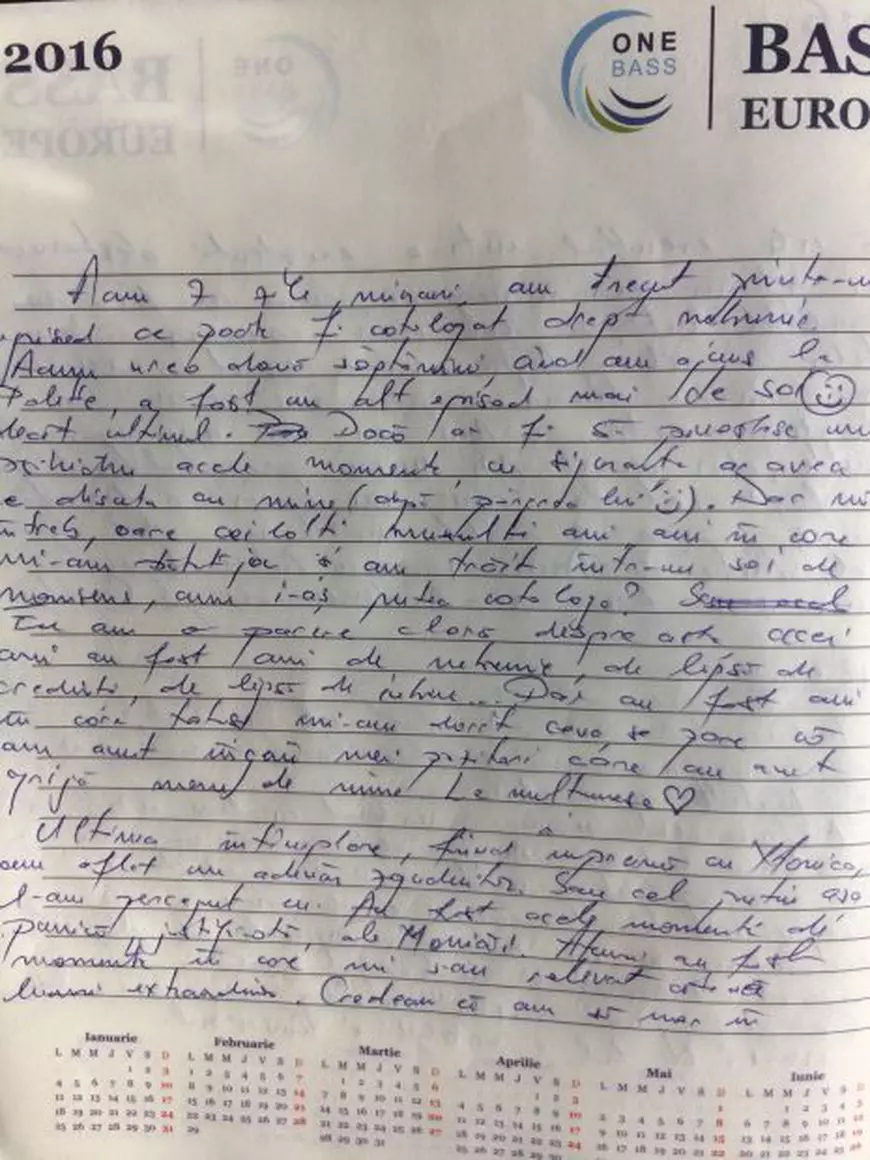 2016
ONE
BASS
BAS
EURO
Acum 7 zile, minori, am trecut printr-u
ce poate fi catalogat drept nebunie.
Acum vreo două săptămîni, cînd am ajuns la
a fost un alt episod mai de so
decît ultimul. Dacă ar fi să
psihiatru acele momente cu siguranță ar avea
ce discuta cu mine (după părerea lui). Dar mă
întreb, oare ceilalți mulți ani, ani în care
mi-am bătut joc și am trăit într-un soi de
nonsens, cum i-aș putea cataloga? 
Eu am o părere clară despre asta acei
ani au fost ani de nebunie, de lipsă de
credință, de lipsă de iubire... Dar au fost ani
în care totuși mi-am dorit ceva, se pare că
am avut îngeri mei păzitori care au avut
grijă mereu de mine. Le mulțumesc ♡
Ultima întîmplare, fiind împreună cu Monica,
am aflat un adevăr zguduitor. Sau cel puțin așa
l-am perceput eu. Au fost acele momente de
panică, justificată, ale Monicăi. Atunci au fost
momente în care mi s-au relevat
lucruri extraordin. Credeam că am să mor în
Ianuarie
L M M J V S D
1 2 3
4 5 6 7 8 9 10
11 12 13 14 15 16 17
18 19 20 21 22 23 24
25 26 27 28 29 30 31
Februarie
L M M J V S D
1 2 3 4 5 6 7
8 9 10 11 12 13 14
15 16 17 18 19 20 21
22 23 24 25 26 27 28
29
Martie
L M M J V S D
1 2 3 4 5 6
7 8 9 10 11 12 13
14 15 16 17 18 19 20
21 22 23 24 25 26 27
28 29 30 31
Aprilie
L M M J V S D
1 2 3
4 5 6 7 8 9 10
11 12 13 14 15 16 17
18 19 20 21 22 23 24
25 26 27 28 29 30
Mai
L M M J V S D
1
2 3 4 5 6 7 8
9 10 11 12 13 14 15
16 17 18 19 20 21 22
Iunie
L M M J V S
1 2 3 4
6 7 8 9 10 11
13 14 15 16 17 18
20 21 22 23 24 25